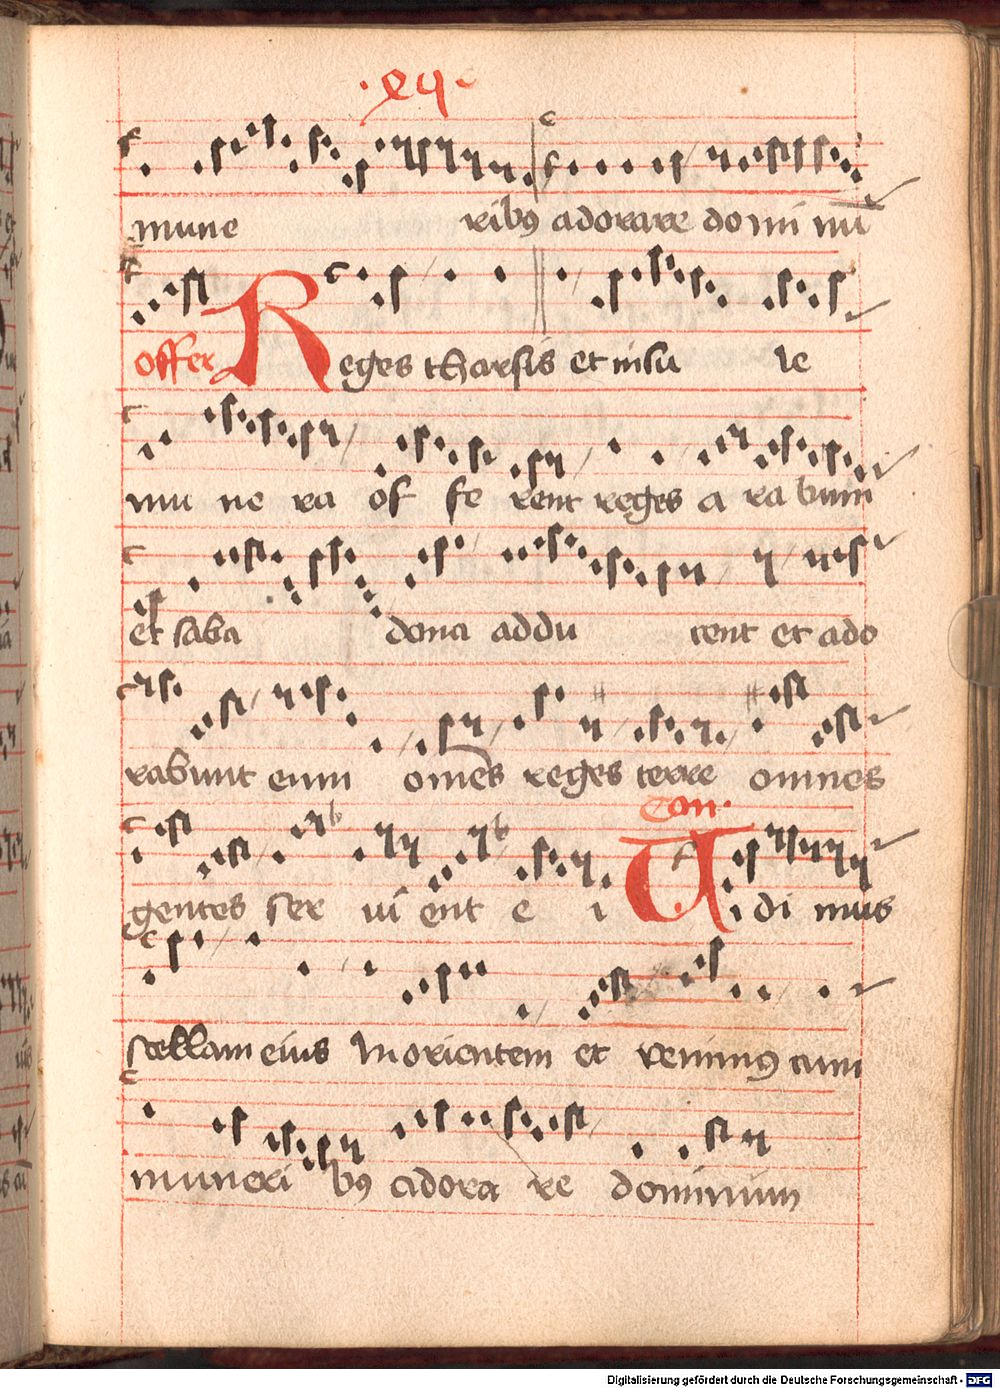 mune ribꝯ adorare domi nū
offer Reges tharsis et insu le
mu ne ra of fe rent reges a ra bum
et saba dona addu cent et ado
rabunt eum om̄es reges terre omnes
Com.
gentes ser vi ent e i Vidi mus
stellam eius In orientem et venimꝯ cum
muneri bꝯ adora re dominum
Digitalisierung gefördert durch die Deutsche Forschungsgemeinschaft - DFG